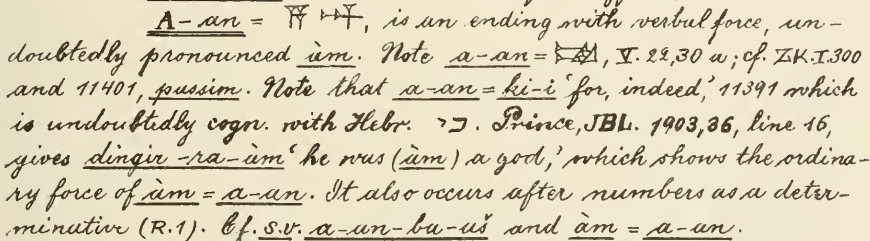 A-an = 𒀀 𒀭, is an ending with verbal force, un-
doubtedly pronounced àm. Note a-an = , V. 22,30 a; cf. ZK.I.300
and 11401, pussim. Note that a-an = ki-i 'for, indeed,' 11391 which
is undoubtedly cogn. with Hebr. כי. Prince, JBL. 1903,36, line 16,
gives dingir-ra-àm 'he was (àm) a god,' which shows the ordina-
ry force of àm = a-an. It also occurs after numbers as a deter-
minative (R.1). Cf. s.v. a-an-ba-uš and àm = a-an.